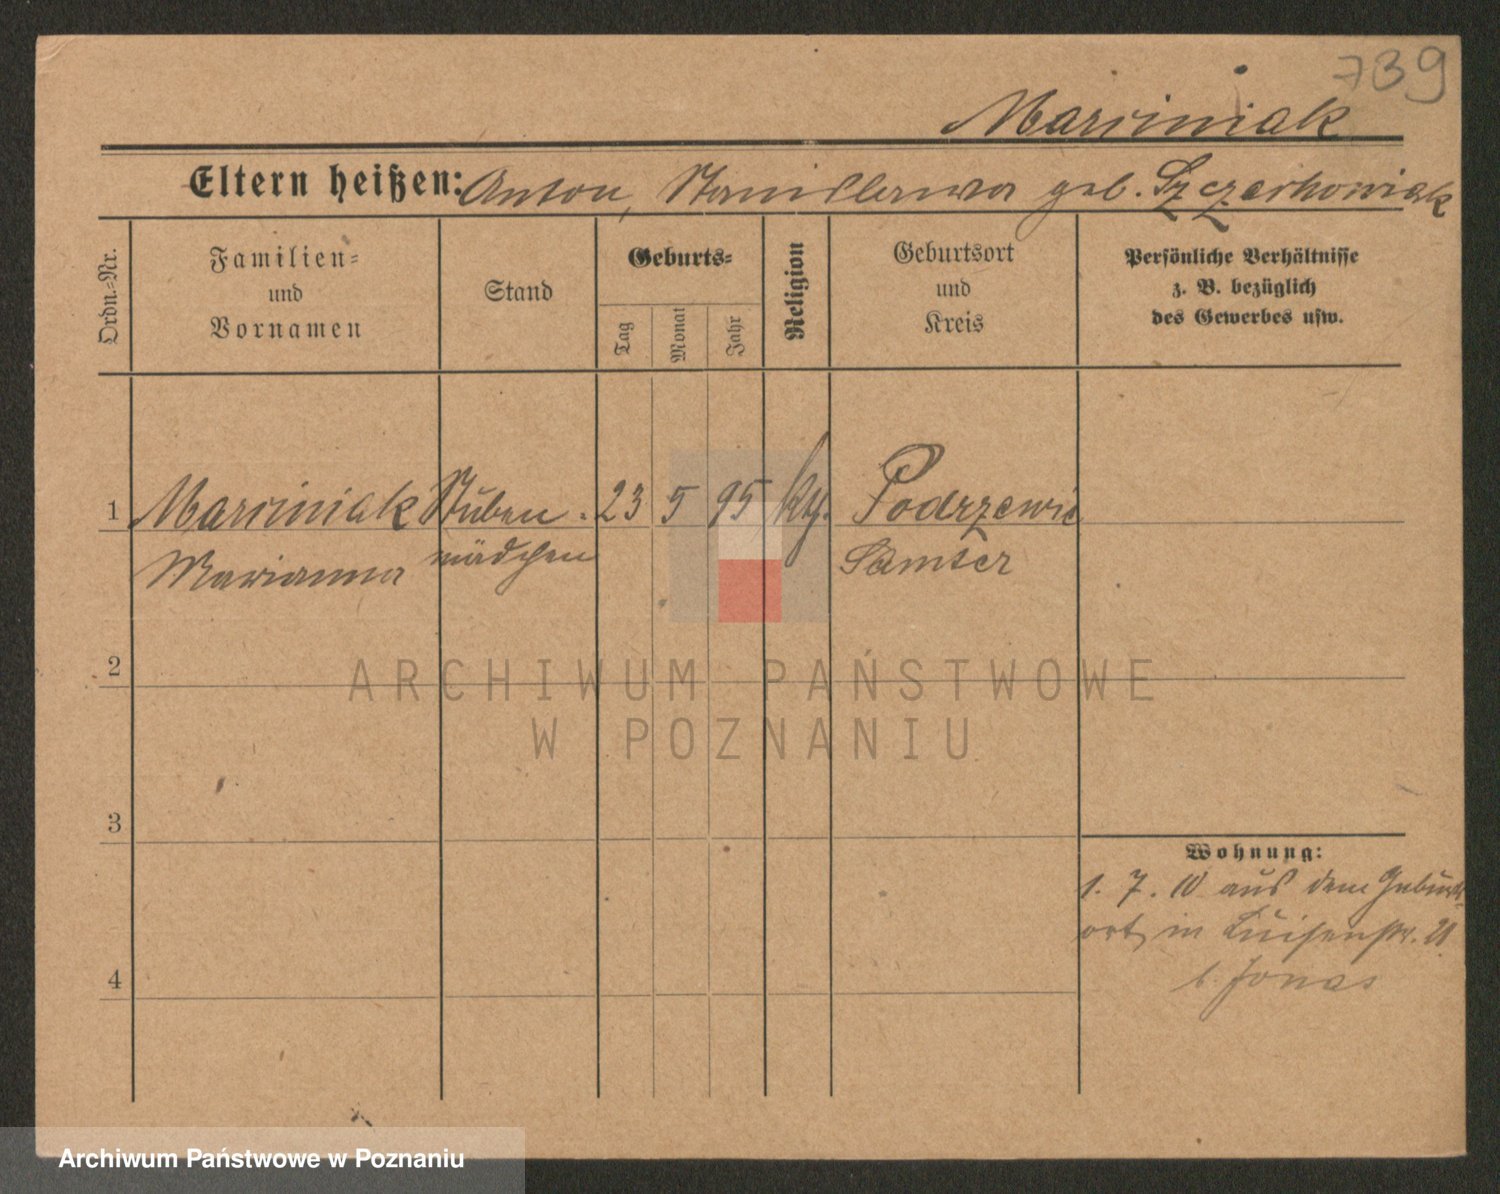 739
Marciniak
Eltern heißen: Anton, Stanislawa geb. Szczerkowiak
Ordn.-Nr.
Familien-
und
Vornamen
Stand
Geburts-
Tag
Monat
Jahr
Religion
Geburtsort
und
Kreis
Persönliche Verhältnisse
z. B. bezüglich
des Gewerbes usw.
1 Marciniak Stuben- 23 5 95 kg. Podrzewie
Marianna mädchen Samter
2
3
4
Wohnung:
1. 7. 10 aus dem Geburts-
ort, in Luisenstr. 21
b. Jonas
ARCHIWUM PAŃSTWOWE
W POZNANIU
Archiwum Państwowe w Poznaniu